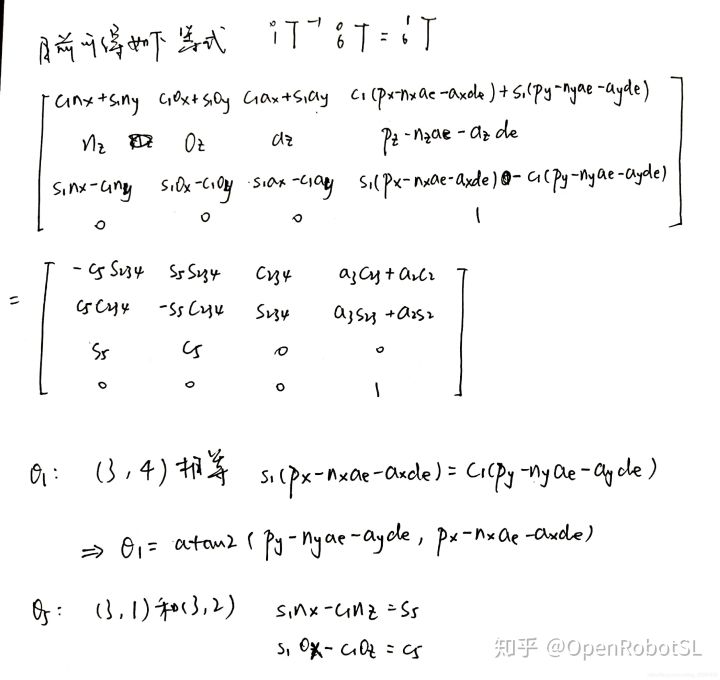 目前可得如下等式 ⁰₁T⁻¹ ⁰₆T = ¹₆T
c₁nx+s₁ny c₁ox+s₁oy c₁ax+s₁ay c₁(px-nxae-axde)+s₁(py-nyae-ayde)
nz oz az pz-nzae-azde
s₁nx-c₁ny s₁ox-c₁oy s₁ax-c₁ay s₁(px-nxae-axde)-c₁(py-nyae-ayde)
0 0 0 1
= -c₅s₂₃₄ s₅s₂₃₄ c₂₃₄ a₃c₂₃+a₂c₂
c₅c₂₃₄ -s₅c₂₃₄ s₂₃₄ a₃s₂₃+a₂s₂
s₅ c₅ 0 0
0 0 0 1
θ₁: (3,4)相等 s₁(px-nxae-axde)=c₁(py-nyae-ayde)
⇒ θ₁=atan2(py-nyae-ayde, px-nxae-axde)
θ₅: (3,1)和(3,2) s₁nx-c₁nz=s₅
s₁ox-c₁oz=c₅
知乎 @OpenRobotSL